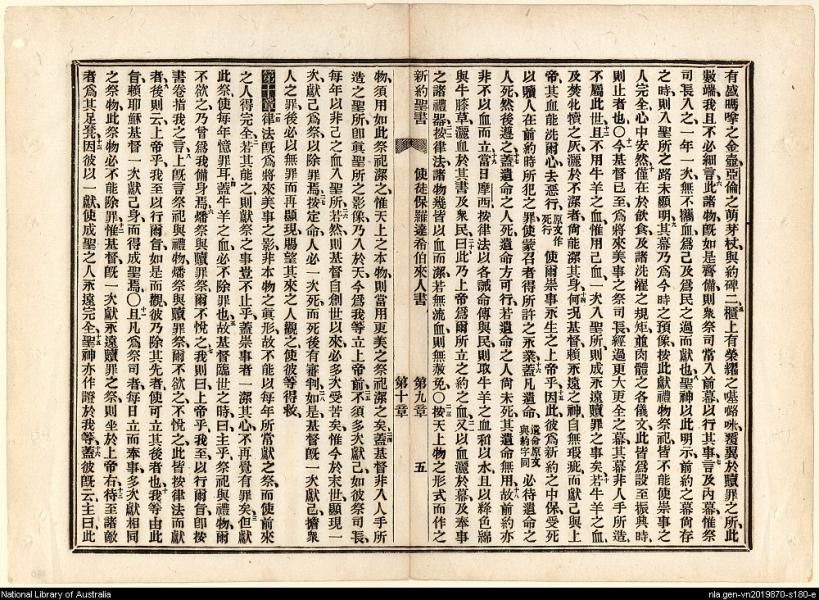 有盛嗎嗱之金壺亞倫之萌芽杖與約碑二櫃上有榮耀之𠼻𡀔咪覆翼於贖罪之所此
數端我且不必細言此諸物既如是齊備則衆祭司當入前幕以行其事言及內幕惟祭
司長入之一年一次無不攜血爲己及爲民之過而獻也聖神以此明示前約之幕尙存
之時則入聖所之路未顯明其幕乃爲今時之預像按此獻禮物祭祀皆不能使崇事之
人完全心中安然僅在於飲食及諸洗濯之規矩並肉體之各儀文此皆爲設至振興時
則止者也〇今基督已至爲將來美事之祭司長經過更大更全之幕其幕非人手所造
不屬此世且不用牛羊之血惟用己血一次入聖所則成永遠贖罪之事矣若牛羊之血
及焚牝犢之灰灑於不潔者尙能潔其身何況基督賴永遠之神自無瑕疵而獻己與上
帝其血能洗爾心去惡行原文作死行使爾崇事永生之上帝乎因此彼爲新約之中保受死
以贖人在前約時所犯之罪使蒙召者得所許之永業蓋凡遺命遺命原文與約字同必待遺命之
人死然後遵之蓋遺命之人死遺命方可行若遺命之人尙未死其遺命無用故前約亦
非不以血而立當日摩西按律法以各誡命傳與民則取牛羊之血和以水且以絳色綿
與牛膝草灑血於其書及衆民曰此乃上帝爲爾所立之約之血又以血灑於幕及奉事
之諸禮器按律法諸物幾皆以血而潔若無流血則無赦免〇按天上物之形式而作之
新約聖書 使徒保羅達希伯來人書 第九章 第十章 五
物須用如此祭祀潔之惟天上之本物則當用更美之祭祀潔之矣蓋基督非入人手所
造之聖所卽眞聖所之影像乃入於天今爲我等立上帝前不須多次獻己如彼祭司長
每年以非己之血入聖所若然則基督自創世以來必多次受苦矣惟今於末世顯現一
次獻己爲祭以除罪焉按定命人必一次死而死後有審判如是基督既一次獻己擔衆
人之罪後必以無罪而再顯現賜望其來之人觀之使彼等得救
第十章律法既爲將來美事之影非本物之眞形故不能以每年所當獻之祭而使前來
之人得完全若其能之則獻祭之事豈不止乎蓋崇事者一潔其心不再覺有罪矣但獻
此祭使每年憶罪耳蓋牛羊之血必不除罪也故基督臨世之時曰主乎祭祀與禮物爾
不欲之乃曾爲我備身焉燔祭與贖罪祭爾不悅之我則曰上帝乎我至以行爾旨卽按
書卷指我之言上既言祭祀與禮物燔祭與贖罪祭爾不欲之不悅之此皆按律法而獻
者後則云上帝乎我至以行爾旨如是而觀彼乃除其先者使可立其後者也我等由此
旨賴耶穌基督一次獻己身而得成聖焉〇且凡爲祭司者每日立而奉事多次獻相同
之祭物此祭物必不能除罪惟基督既一次獻永遠贖罪之祭則坐於上帝右待至諸敵
者爲其足凳因彼以一獻使成聖之人永遠完全聖神亦作證於我等蓋彼既云主曰此
National Library of Australia
nla.gen-vn2019870-s180-e